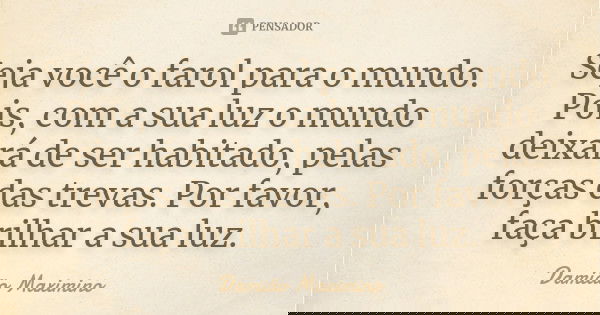 PENSADOR
Seja você o farol para o mundo.
Pois, com a sua luz o mundo
deixará de ser habitado, pelas
forças das trevas. Por favor,
faça brilhar a sua luz.
Damião Maximino